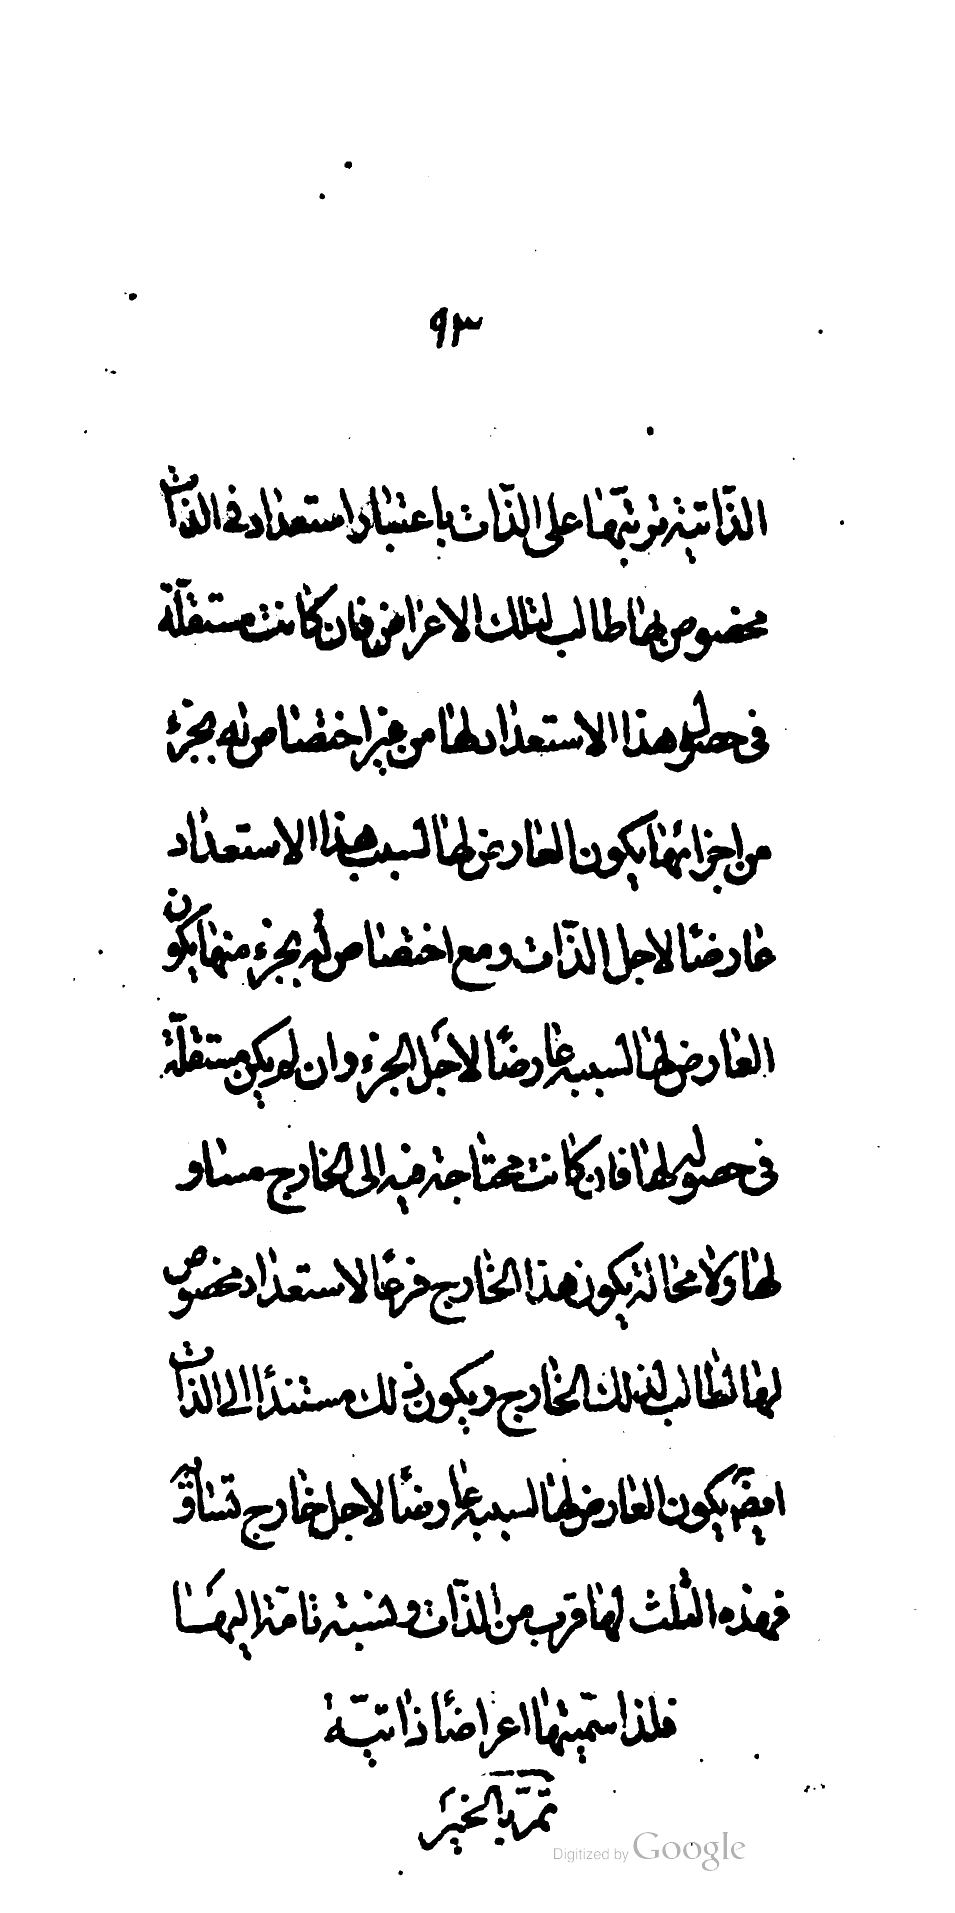 ٩٣
الذّاتية ترتبّها على الذّات باعتبار استعداد في الذات
مخصوص بها طالب لتلك الاعراض فان كانت مستقلّة
في حصول هذا الاستعداد لها من غير اختصاص له بجزء
من اجزائها يكون العارض لها لسبب هذا الاستعداد
عارضًا لاجل الذّات ومع اختصاص له بجزء منها يكون
العارض لها لسببه عارضًا لاجل الجزء وان لم يكن مستقلّة
في حصوله لها فان كانت محتاجة فيه الى الخارج مساو
لها ولا محالة يكون هذا الخارج فرعًا لاستعداد مخصوص
لها لطالب لذلك الخارج ويكون ذلك مستندًا الى الذات
ايضًا يكون العارض لها لسببه عارضًا لاجل خارج تساوق
فهذه الثلث لها قرب من الذّات ونسبة تامّة اليها
فلذا سمّيتها اعراضًا ذاتيّة
تمّ بالخير
Digitized by Google